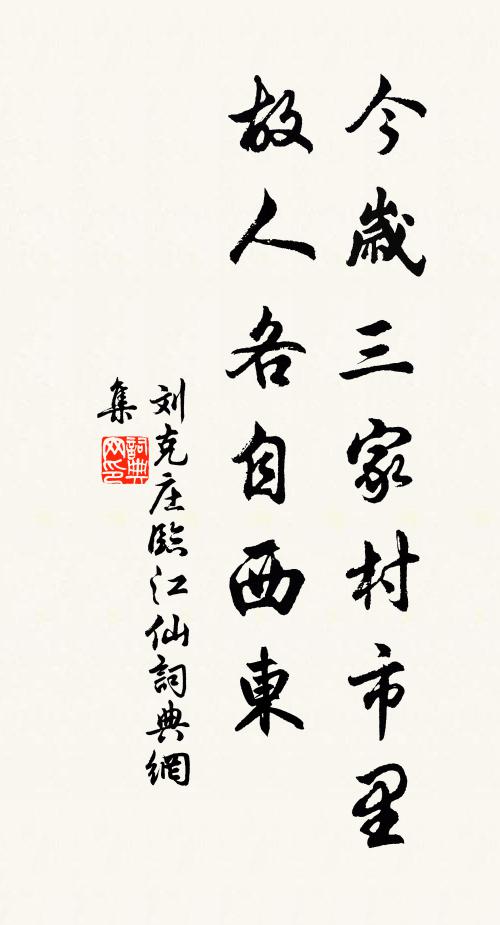 今歲三家村市里
故人各自西東
刘克庄臨江仙詞典網
集
詞典
网印